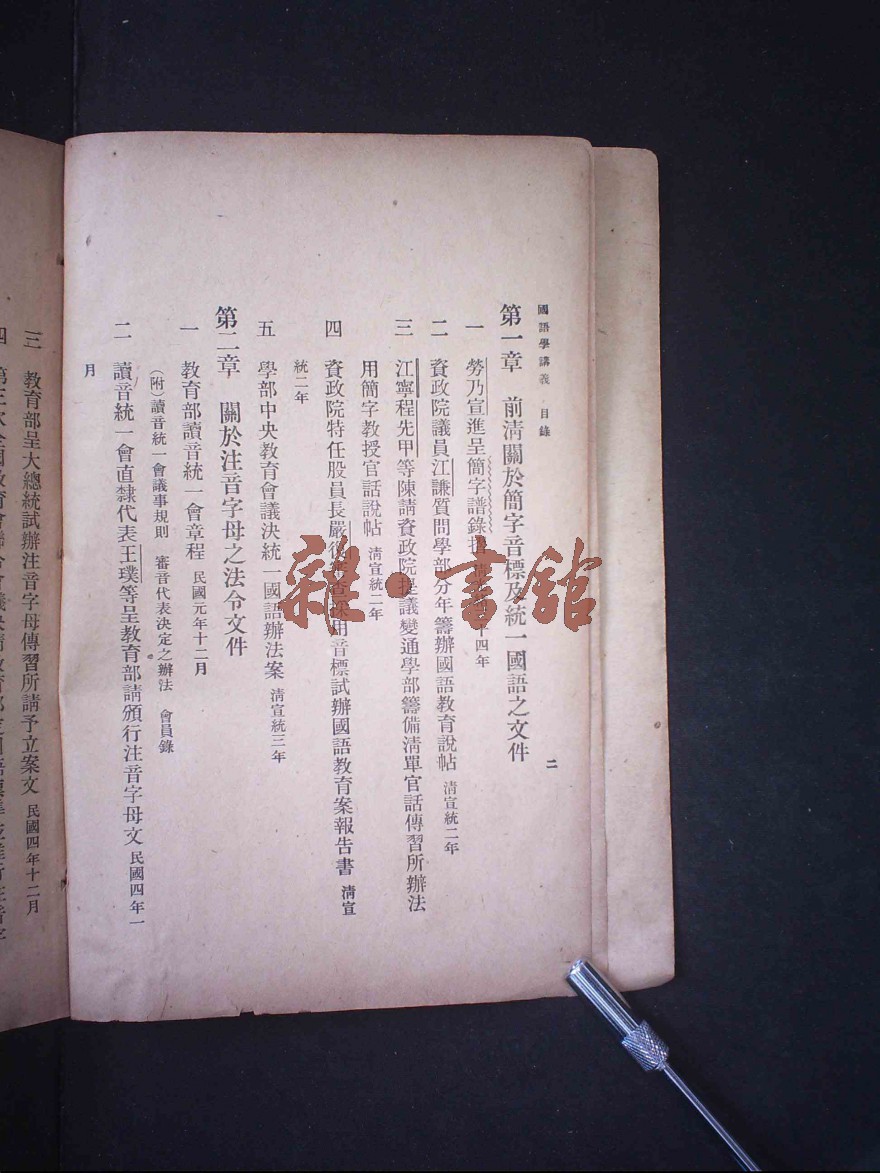 國語學講義　目錄
二
第一章　前淸關於簡字音標及統一國語之文件
一　勞乃宣進呈簡字譜錄摺　十四年
二　資政院議員江謙質問學部分年籌辦國語教育說帖　淸宣統二年
三　江寧程先甲等陳請資政院提議變通學部籌備淸單官話傳習所辦法
用簡字教授官話說帖　淸宣統二年
四　資政院特任股員長嚴復審查採用音標試辦國語教育案報告書　淸宣
統二年
五　學部中央教育會議決統一國語辦法案　淸宣統三年
第二章　關於注音字母之法令文件
一　教育部讀音統一會章程　民國元年十二月
（附）讀音統一會議事規則　審音代表決定之辦法　會員錄
二　讀音統一會直隸代表王璞等呈教育部請頒行注音字母文　民國四年一
月
三　教育部呈大總統試辦注音字母傳習所請予立案文　民國四年十二月
四　第三次全國教育會聯合會議決請教育部
雜·書館